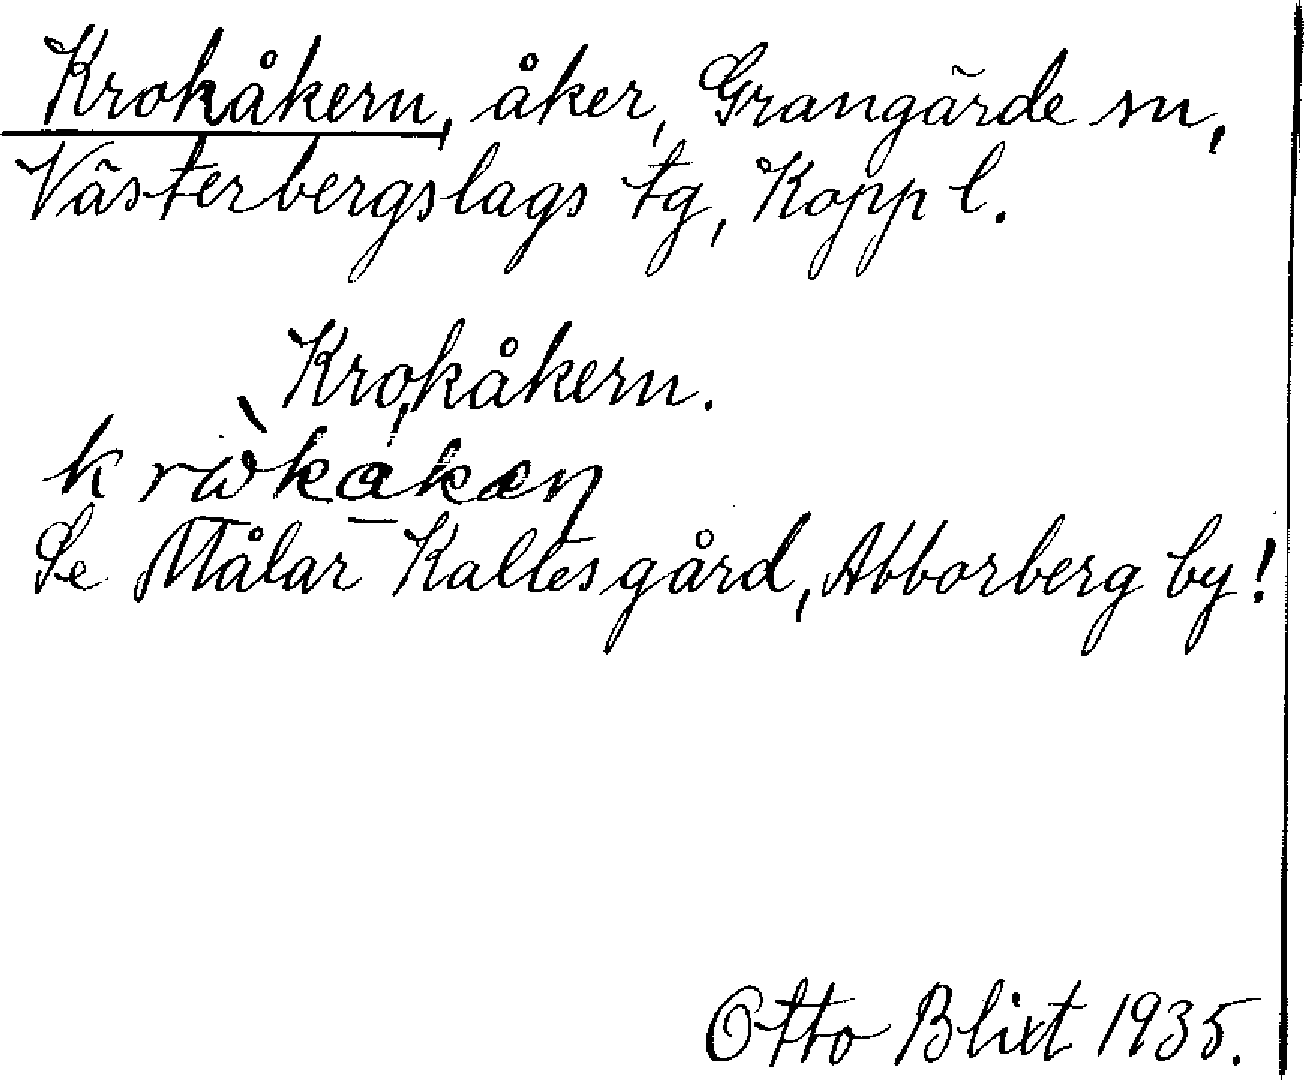 Krokåkern, åker, Grangärde sn,
Västerbergslags tg, Kopp l.
Krokåkern.
Se Målar Kaltesgård, Abborberg by!
Otto Blixt 1935.